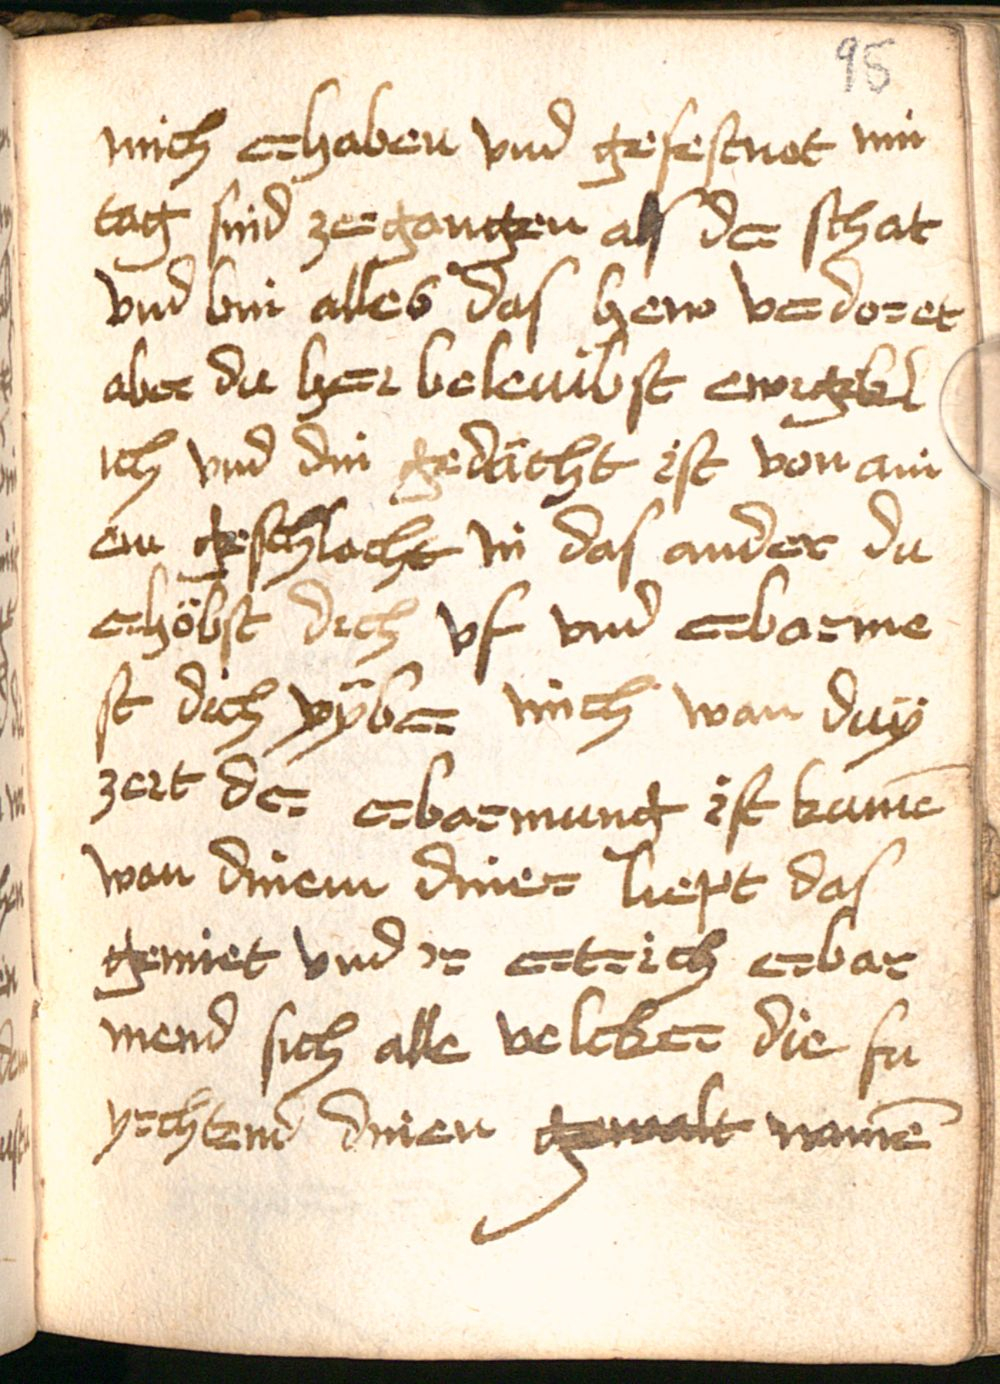 95
mich erhaben vnd gefestnot min
tag sind zergangen als der schat
vnd bin alles das hew verdoret
aber du herr beleuibst ewigkl
ich vnd din gedächt ist von ain
em geschlecht in das ander du
erhöbst dich vf vnd erbarme
st dich vÿber mich wan duÿ
zeit der erbarmung ist kumē
wan dinem diner liept das
gemiet vnd ir ertrich erbar
mend sich alle velcker die fu
yrchtend dinen gewalt namē